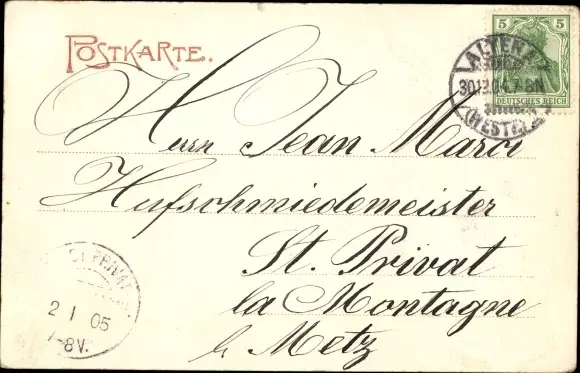 POSTKARTE.
5 5
DEUTSCHES REICH
ALTENA
30.12.04.7-8N.
(WESTF.)
Herrn Jean Maroi
Hufschmiedemeister
St. Privat
la Montagne
b. Metz
ST PRIVAT
2 1 05
7-8V.